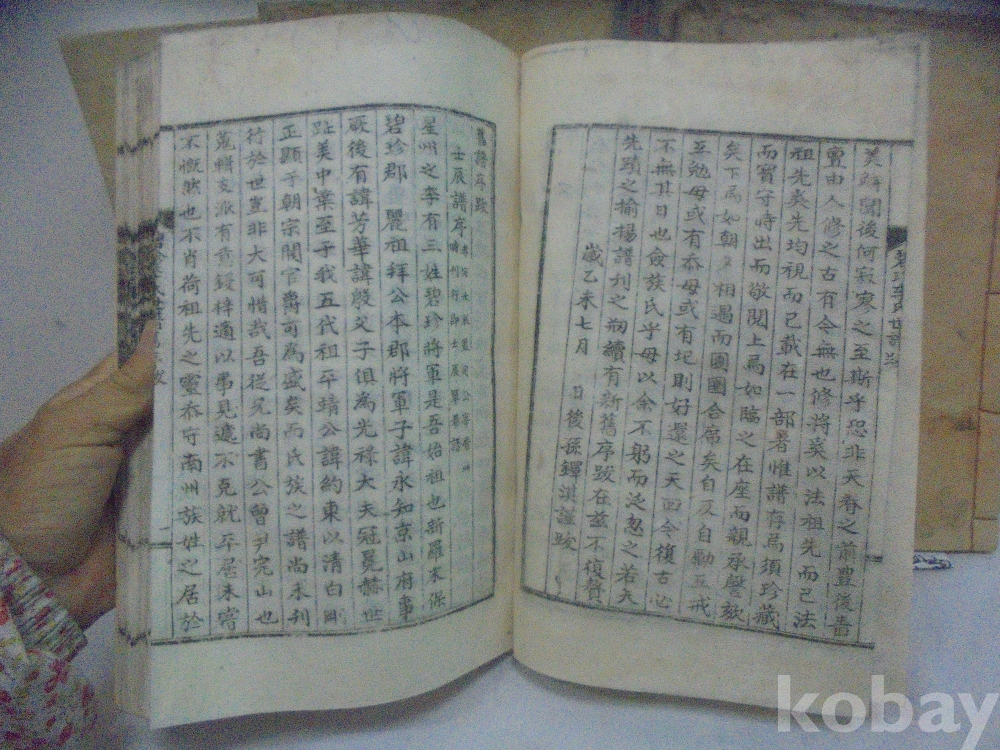 美歸闃後何寂寥之至斯乎恐非天眷之前豊後嗇
實由人修之古有今無也修將奚以法祖先而已法
祖先奚先均視而已載在一部者惟譜存焉須珍藏
而寶守時出而敬閱上焉如臨之在座而親承謦欬
矣下焉如朝夕相遇而團圓合席矣自反自勖互戒
互勉毋或有忝毋或有圮則好還之天四令復古必
不無其日也僉族氏乎毋以余不躬而泛忽之若夫
先蹟之揄揚譜刊之病讀有新舊序跋在玆不復贅
歲乙未七月 日後孫鐸淇謹跋
舊譜序跋
壬辰譜序
星州之李有三姓碧珍將軍是吾始祖也新羅末保
碧珍郡 麗祖拜公本郡將軍子諱永知京山府事
厥後有諱芳華諱殷父子俱爲光祿大夫冠冕赫世
趾美中葉至于我五代祖平靖公諱約東以清白剛
正顯于朝宗閥官爵可爲盛矣而氏族之譜尚未刊
行於世豈非大可惜哉吾從兄尚書公曾尹完山也
蒐輯支派有意鋟梓適以事見遞不克就平居未嘗
不慨然也不肖荷祖先之靈忝守南州族姓之居於
kobay